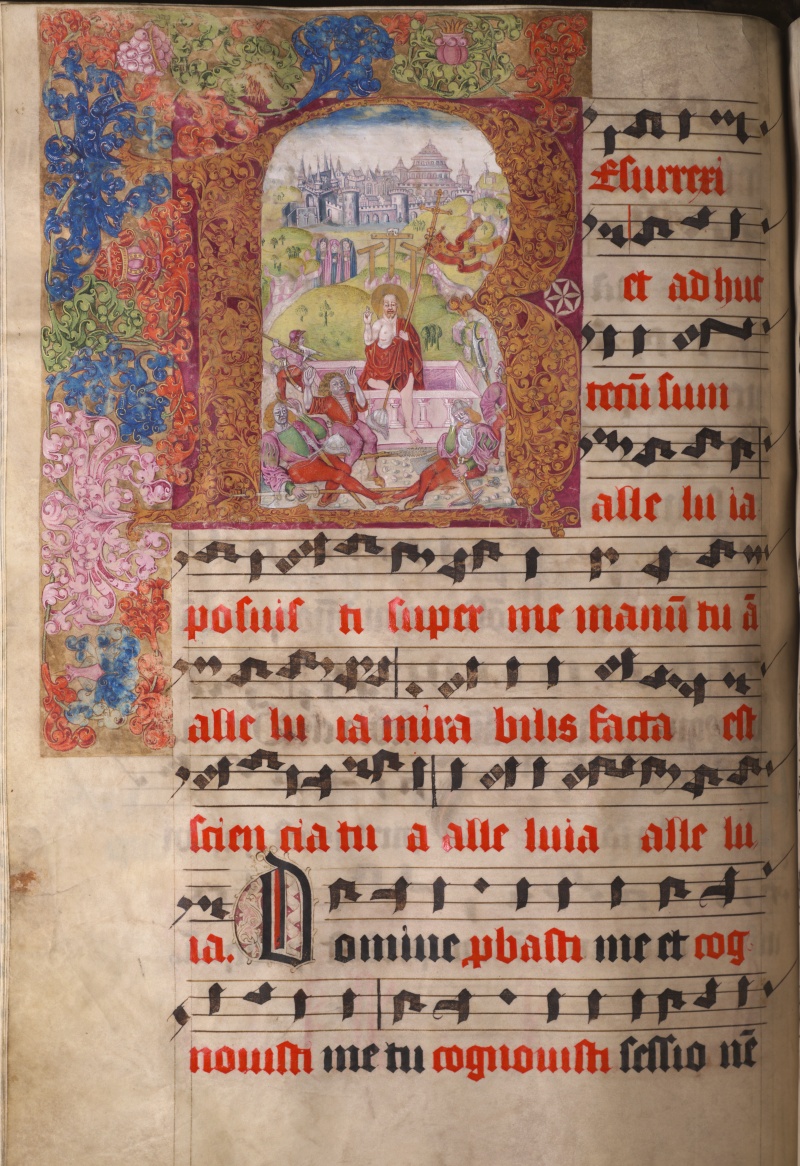 Resurrexi
et adhuc
tecū sum
alle lu ia
posuis ti super me manū tu ā
alle lu ia mira bilis facta est
scien cia tu a alle luia alle lu
ia. Domine pbasti me et cog
novisti me tu cognovisti sessio nē